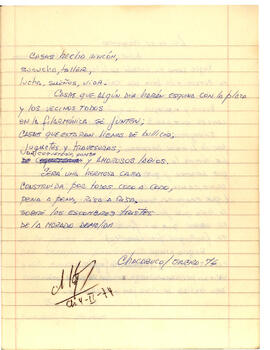 CASAS hecho RINCÓN,
escuela, taller,
lucha, sueños, vida.
CASAS que algún día harán esquina con la plaza
y los vecinos todos
en la filarmónica se junten;
CASAS que estarán llenas de bullicio,
juguetes y travesuras,
de
y amorosos labios.
Será una hermosa casa
construida por todos codo a codo,
pena a pena, risa a risa,
sobre los escombros tristes
de la morada demolida
Chacabuco/ENERO-74